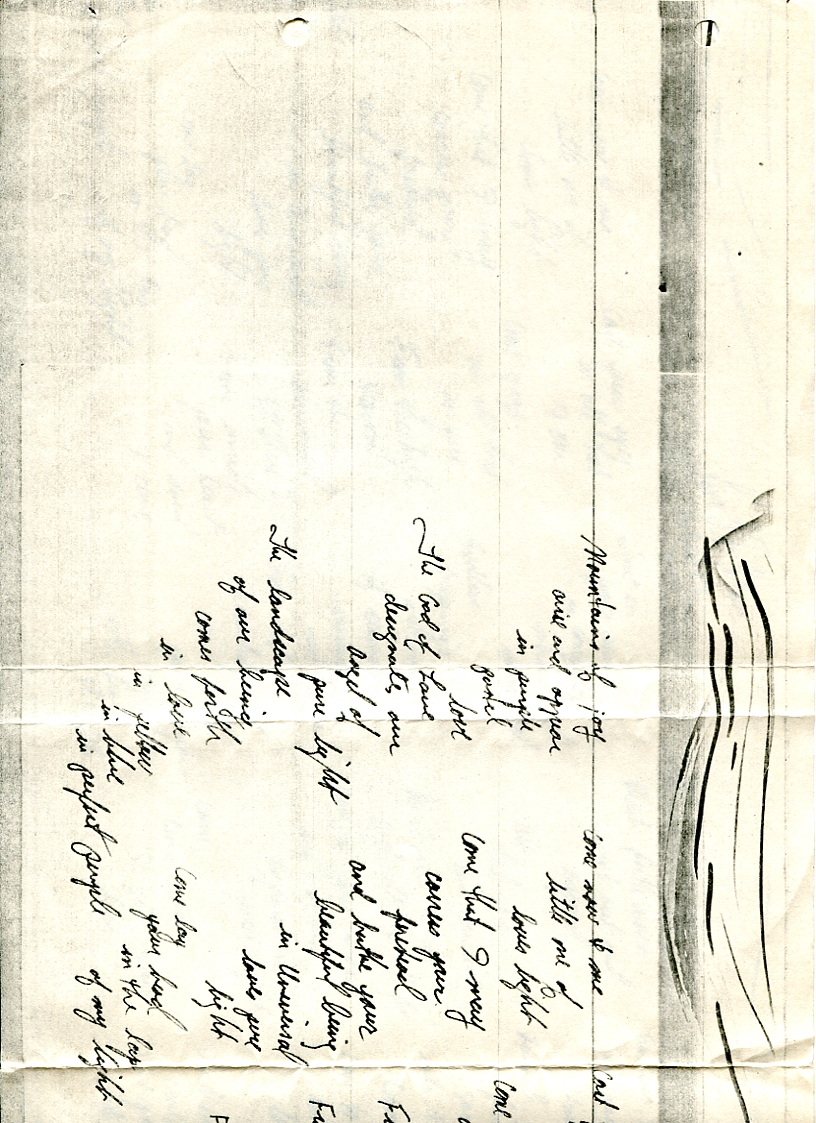 Mountains of joy
arise and appear
in purple
pastel
love
The God of Love
designates our
angel of
pure light
The landscape
of our being
comes forth
in love
in yellow
in blue
in perfect purple
Come now to me
little one of
loves light
Come that I may
caress your
forehead
and bathe your
beautiful being
in Universal
loves pure
light
Come lay
your head
in the lap
of my light
Come